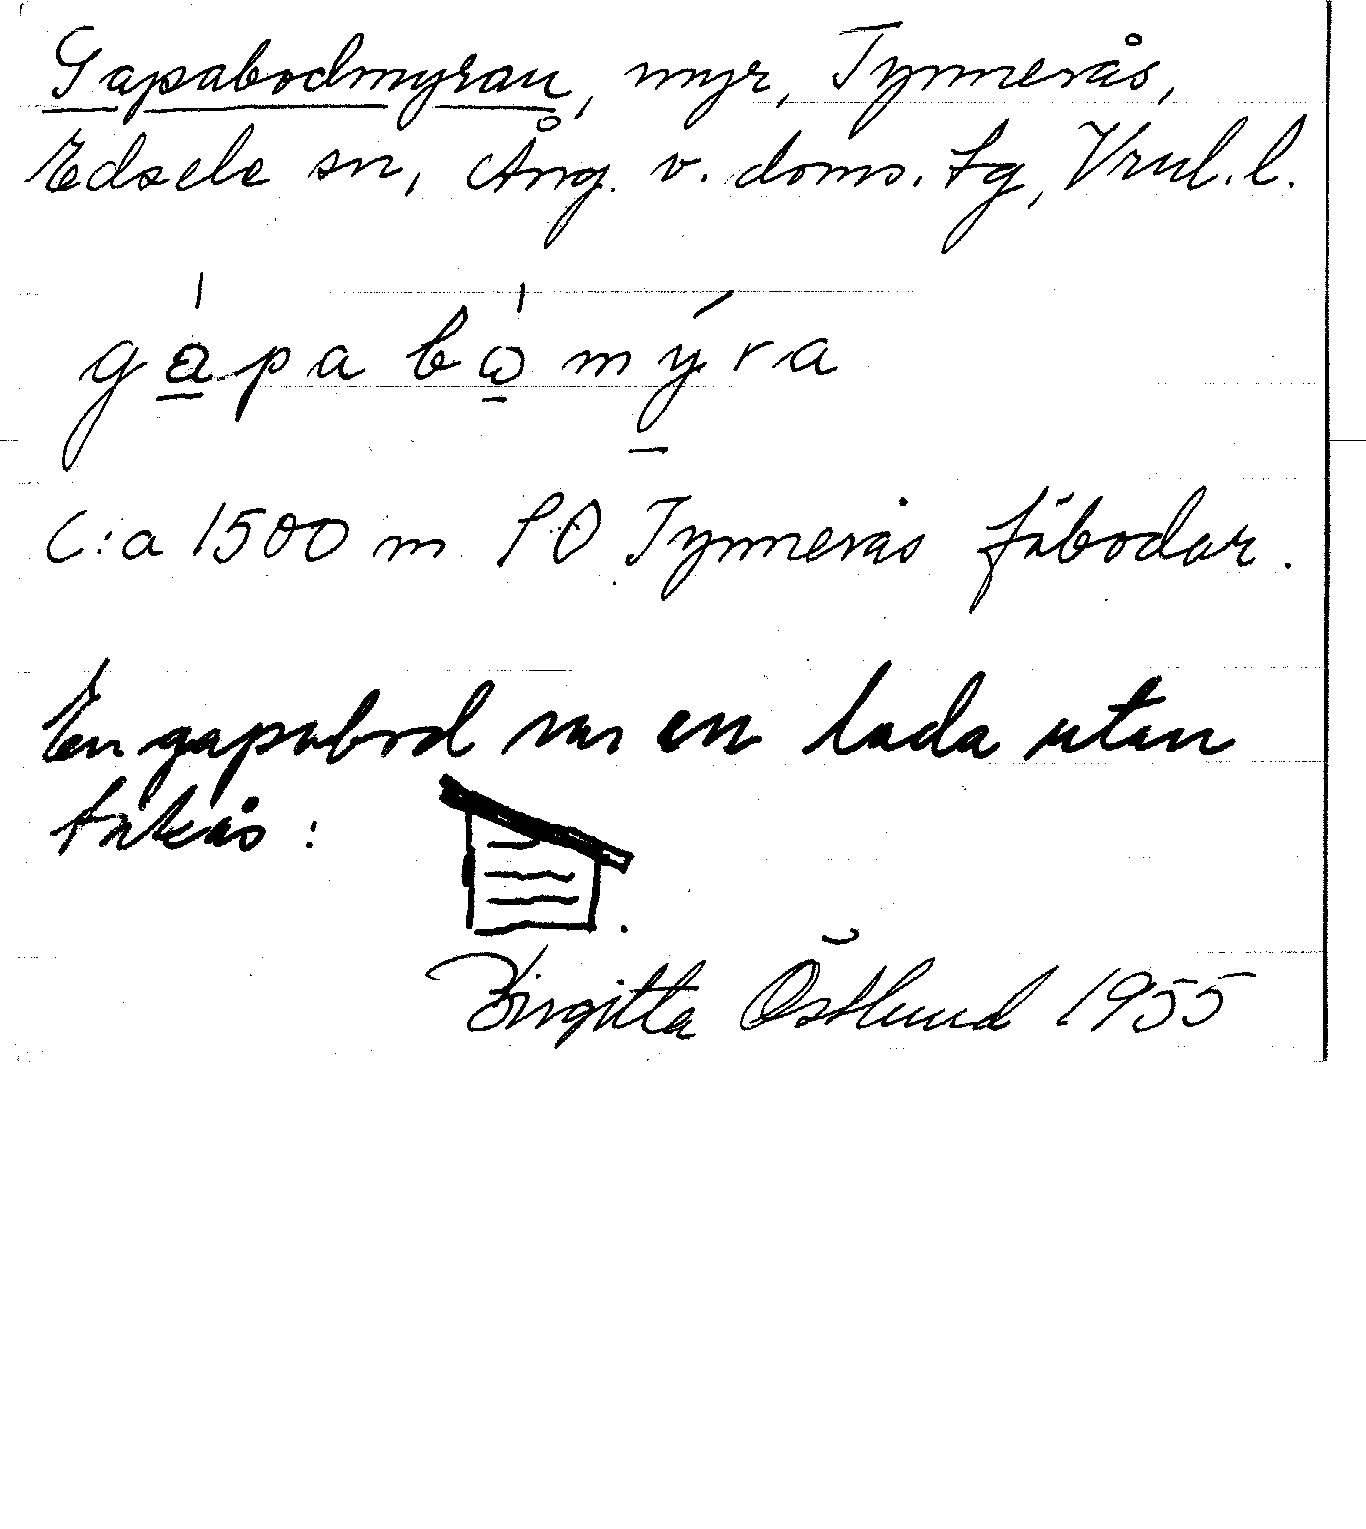 Gapabodmyran, myr, Tynnerås,
Edsele sn, Ång. v. doms. tg,
gápabómýra
C:a 1500 m SO Tynnerås fäbodar.
En gapabod var en lada utan
takås:
Birgitta Östlund 1955